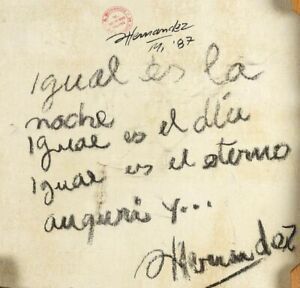 Hernandez
M, '87
igual es la
noche
Igual es el día
Igual es el eterno
y...
Hernandez